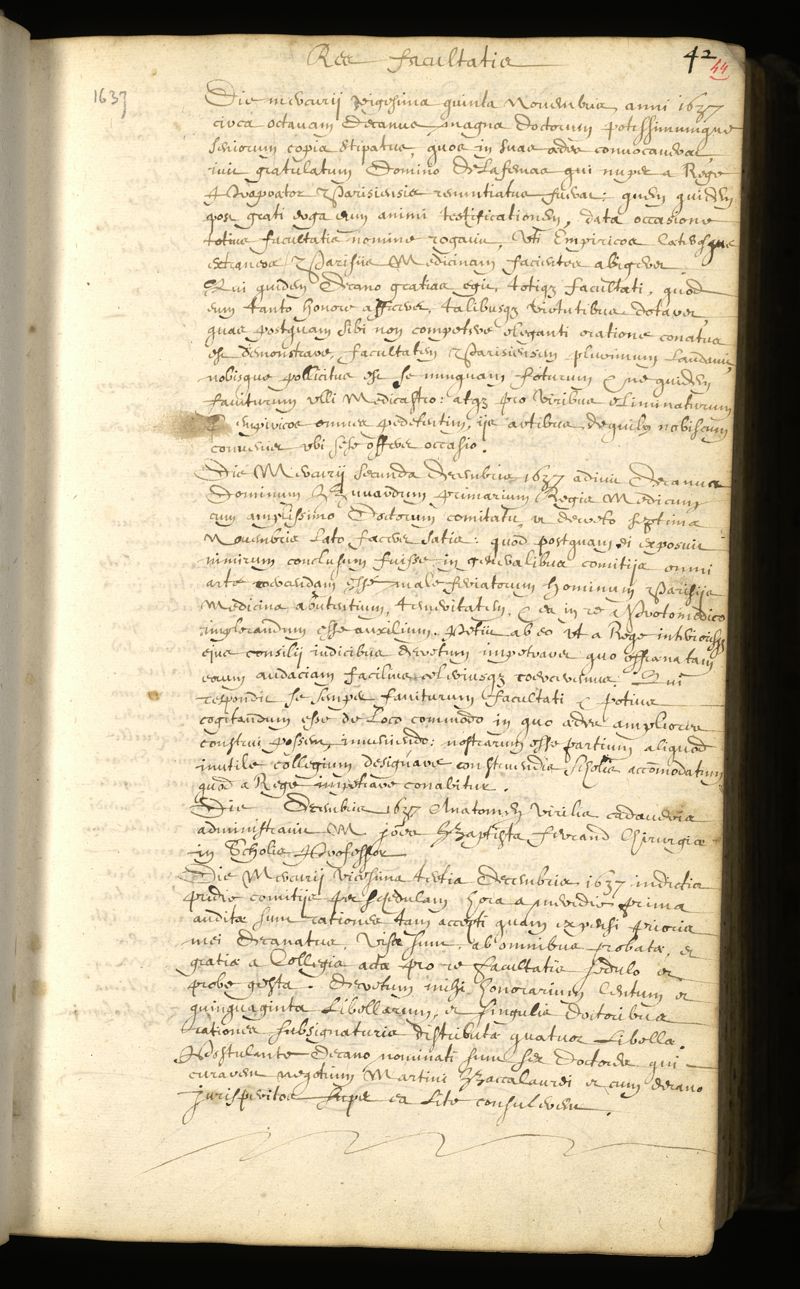 Res facultatis
42
44
1637
Die mercurij vigesima quinta Novembris anni 1637
circa octavam Decanus magna doctorum potissimumque
seniorum copia stipatus, quos in suas aedes convocaverat,
ivit gratulatum Domino De Lafemas qui nuper a Rege
Propraetor Parisiensis renuntiatus fuerat: quem quidem
post grati erga eum animi testificationem, data occasione
totius facultatis nomine rogavit, uti Empiricos caterosque
extraneos Parisijs Medicinam facientes abigeret.
Qui quidem Decano gratias egit, totiq; facultati, quod
eum tanto honore afficeret, talibusq; virtutibus dotaret,
quas postquam sibi non competere eleganti oratione conatus
est demonstrare, facultatem Parisiensem plurimum laudavit,
nobisque pollicitus est se nunquam foturum & ne quidem
fauiturum ulli Medicastro: atq; pro viribus eliminaturum
empiricos omnes pedetentim, ijs artibus de quibus nobiscum
conveniet ubi sese offeret occasio.
Die Mercurij secunda decembris 1637 adivit Decanus
Dominum Bouvardum primarium Regis Medicum
cum amplissimo Doctorum comitatu, ut decreto septima
Novembris lato faceret satis: quod postquam ei exposuit
nimirum conclusum fuisse in generalibus comitijs omni
arte coercendam esse male feriatorum hominum Parisijs
Medicina abutentium, temeritatem, & ea in re a Protomedico
implorandum esse auxilium. Petiit ab eo ut a Rege intimoribusq;
ejus consilij iudicibus decretum impetraret quo effrenatam
eorum audaciam facilius celeriusq; coerceremus. Qui
respondit se semper fauiturum facultati & potius
cogitandum esse de loco commodo in quo aedes ampliores
construi possent, inveniendo: nostrarum esse partium aliquod
inutile collegium designare construendis scholis accommodatum
quod a Rege impetrare conabitur.
Die Decembris 1637 Anatomen virilis cadaveris
administravit M. Joães Baptista Ferrand Chirurgiae
in Scholis Professor
Die Mercurij vicesima tertia decembris 1637 indictis
pridie comitijs per schedulam hora a meridie prima
auditae sunt rationes tam accepti quam expensi prioris
mei decanatus, visae sunt, ab omnibus probatae, et
gratiae a Collegis actae pro re facultatis sedulo et
probe gesta. decretum mihi honorarium centum et
quinquaginta libellarum, et singulis doctoribus
rationes subsignaturis distributa quatuor libella.
Postulante decano nominati sunt sex doctores qui
curarent negotium Martini Baccalaurei et cum decano
jurisperitos super ea lite consulerent.